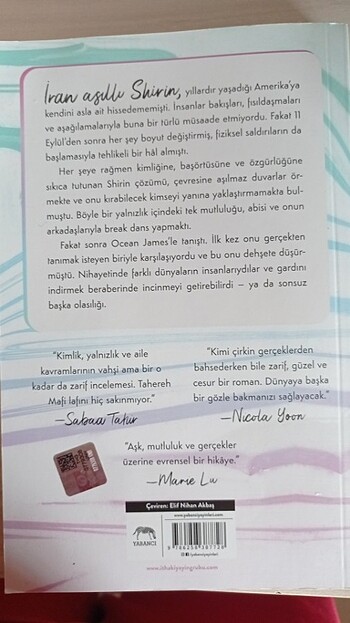 İran asıllı Shirin, yıllardır yaşadığı Amerika'ya
kendini asla ait hissedememişti. İnsanlar bakışları, fısıldaşmaları
ve aşağılamalarıyla buna bir türlü müsaade etmiyordu. Fakat 11
Eylül'den sonra her şey boyut değiştirmiş, fiziksel saldırıların da
başlamasıyla tehlikeli bir hâl almıştı.
Her şeye rağmen kimliğine, başörtüsüne ve özgürlüğüne
sıkıca tutunan Shirin çözümü, çevresine aşılmaz duvarlar ör-
mekte ve onu kırabilecek kimseyi yanına yaklaştırmamakta bul-
muştu. Böyle bir yalnızlık içindeki tek mutluluğu, abisi ve onun
arkadaşlarıyla break dans yapmaktı.
Fakat sonra Ocean James'le tanıştı. İlk kez onu gerçekten
tanımak isteyen biriyle karşılaşıyordu ve bu onu dehşete düşür-
müştü. Nihayetinde farklı dünyaların insanlarıydılar ve gardını
indirmek beraberinde incinmeyi getirebilirdi – ya da sonsuz
başka olasılığı.
"Kimlik, yalnızlık ve aile
kavramlarının vahşi ama bir o
kadar da zarif incelemesi. Tahereh
Mafi lafını hiç sakınmıyor."
—Sabaa Tahir
"Kimi çirkin gerçeklerden
bahsederken bile zarif, güzel ve
cesur bir roman. Dünyaya başka
bir gözle bakmanızı sağlayacak."
—Nicola Yoon
"Aşk, mutluluk ve gerçekler
üzerine evrensel bir hikâye."
—Marie Lu
Çeviren: Elif Nihan Akbaş
www.yabanciyayinlari.com
YABANCI
/yabanciyayinlari
www.ithakiyayingrubu.com